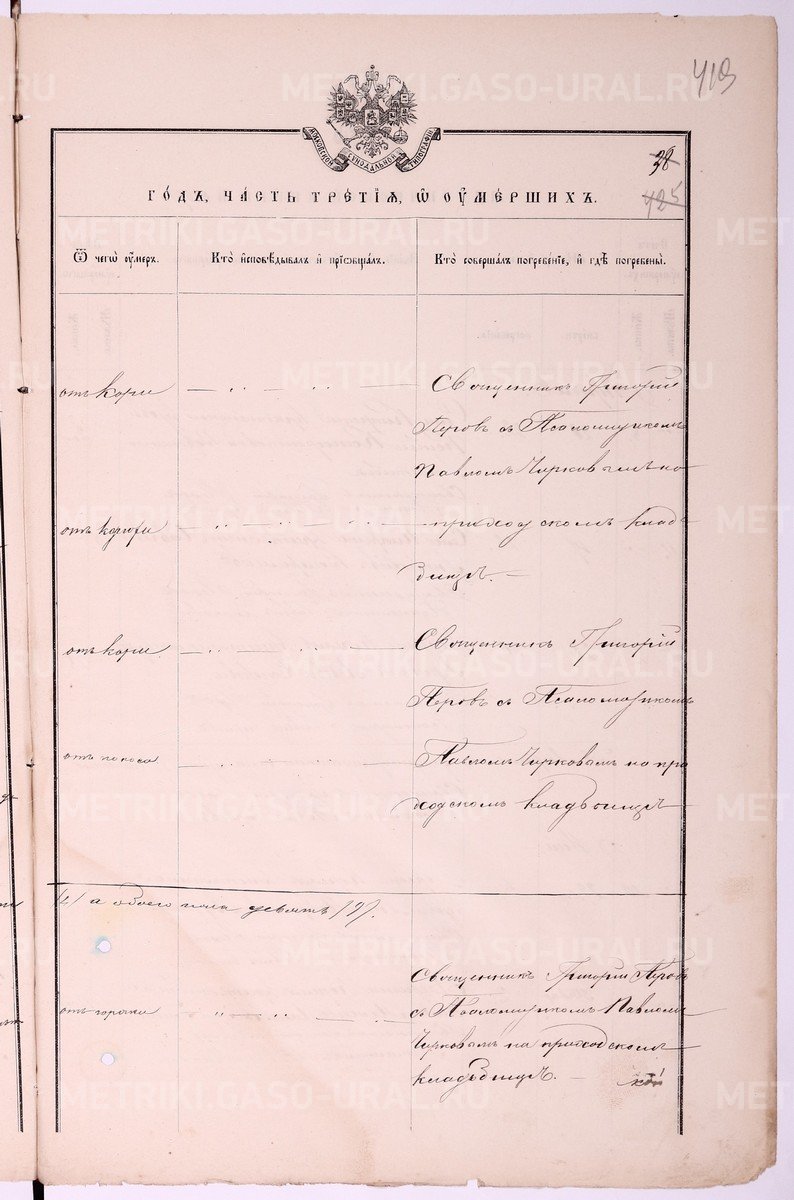 419
МОСКОВСКОЙ СѴНОДАЛЬНОЙ ТИПОГРАФІИ
38
425
ГОДЪ, ЧАСТЬ ТРЕТІѦ, Ѿ ОУМЕРШИХЪ.
Ѿ чегѡ оумеръ.
Кто исповѣдывалъ и прїѡбщалъ.
Кто совершалъ погребенїе, и гдѣ погребены.
отъ кори
Священникъ Григорій
Перовъ съ Псаломщикомъ
Павломъ Чирковымъ на
отъ кори
приходскомъ клад-
бищѣ.
отъ кори
Священникъ Григорій
Перовъ съ Псаломщикомъ
отъ поноса
Павломъ Чирковымъ на при
ходскомъ кладбищѣ
а обоего пола девять /9/.
Священникъ Григорій Перовъ
отъ горячки
съ Псаломщикомъ Павломъ
Чирковымъ на приходскомъ
кладбищѣ.
METRIKI.GASO-URAL.RU